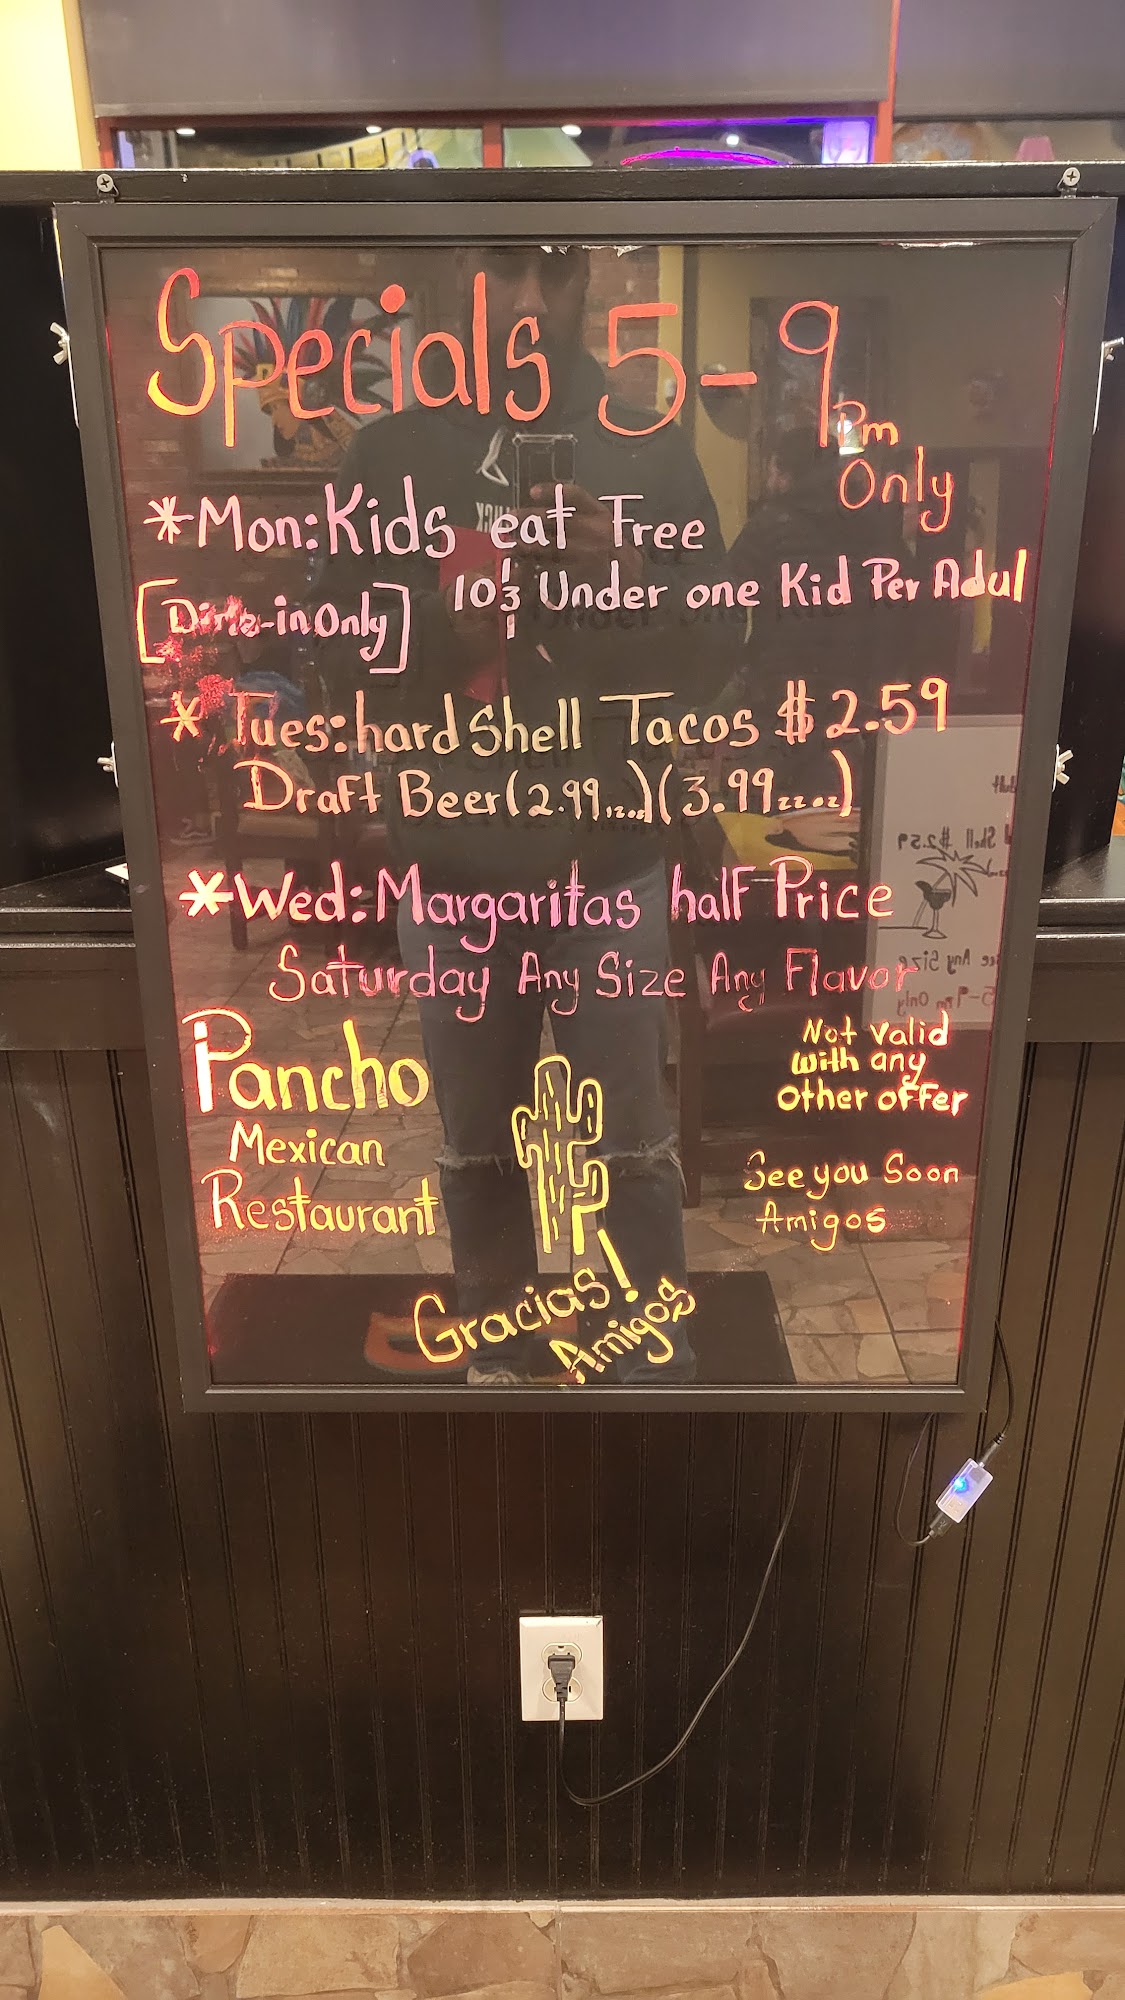 Specials 5-9
Pm
Only
*Mon:Kids eat Free
[Dine-in Only] 10 & Under one Kid Per Adul
* Tues:hard Shell Tacos $2.59
Draft Beer(2.99 12oz)(3.99 22oz)
*Wed:Margaritas half Price
Saturday Any Size Any Flavor
Pancho
Mexican
Restaurant
Not Valid
with any
other offer
See you Soon
Amigos
Gracias!
Amigos